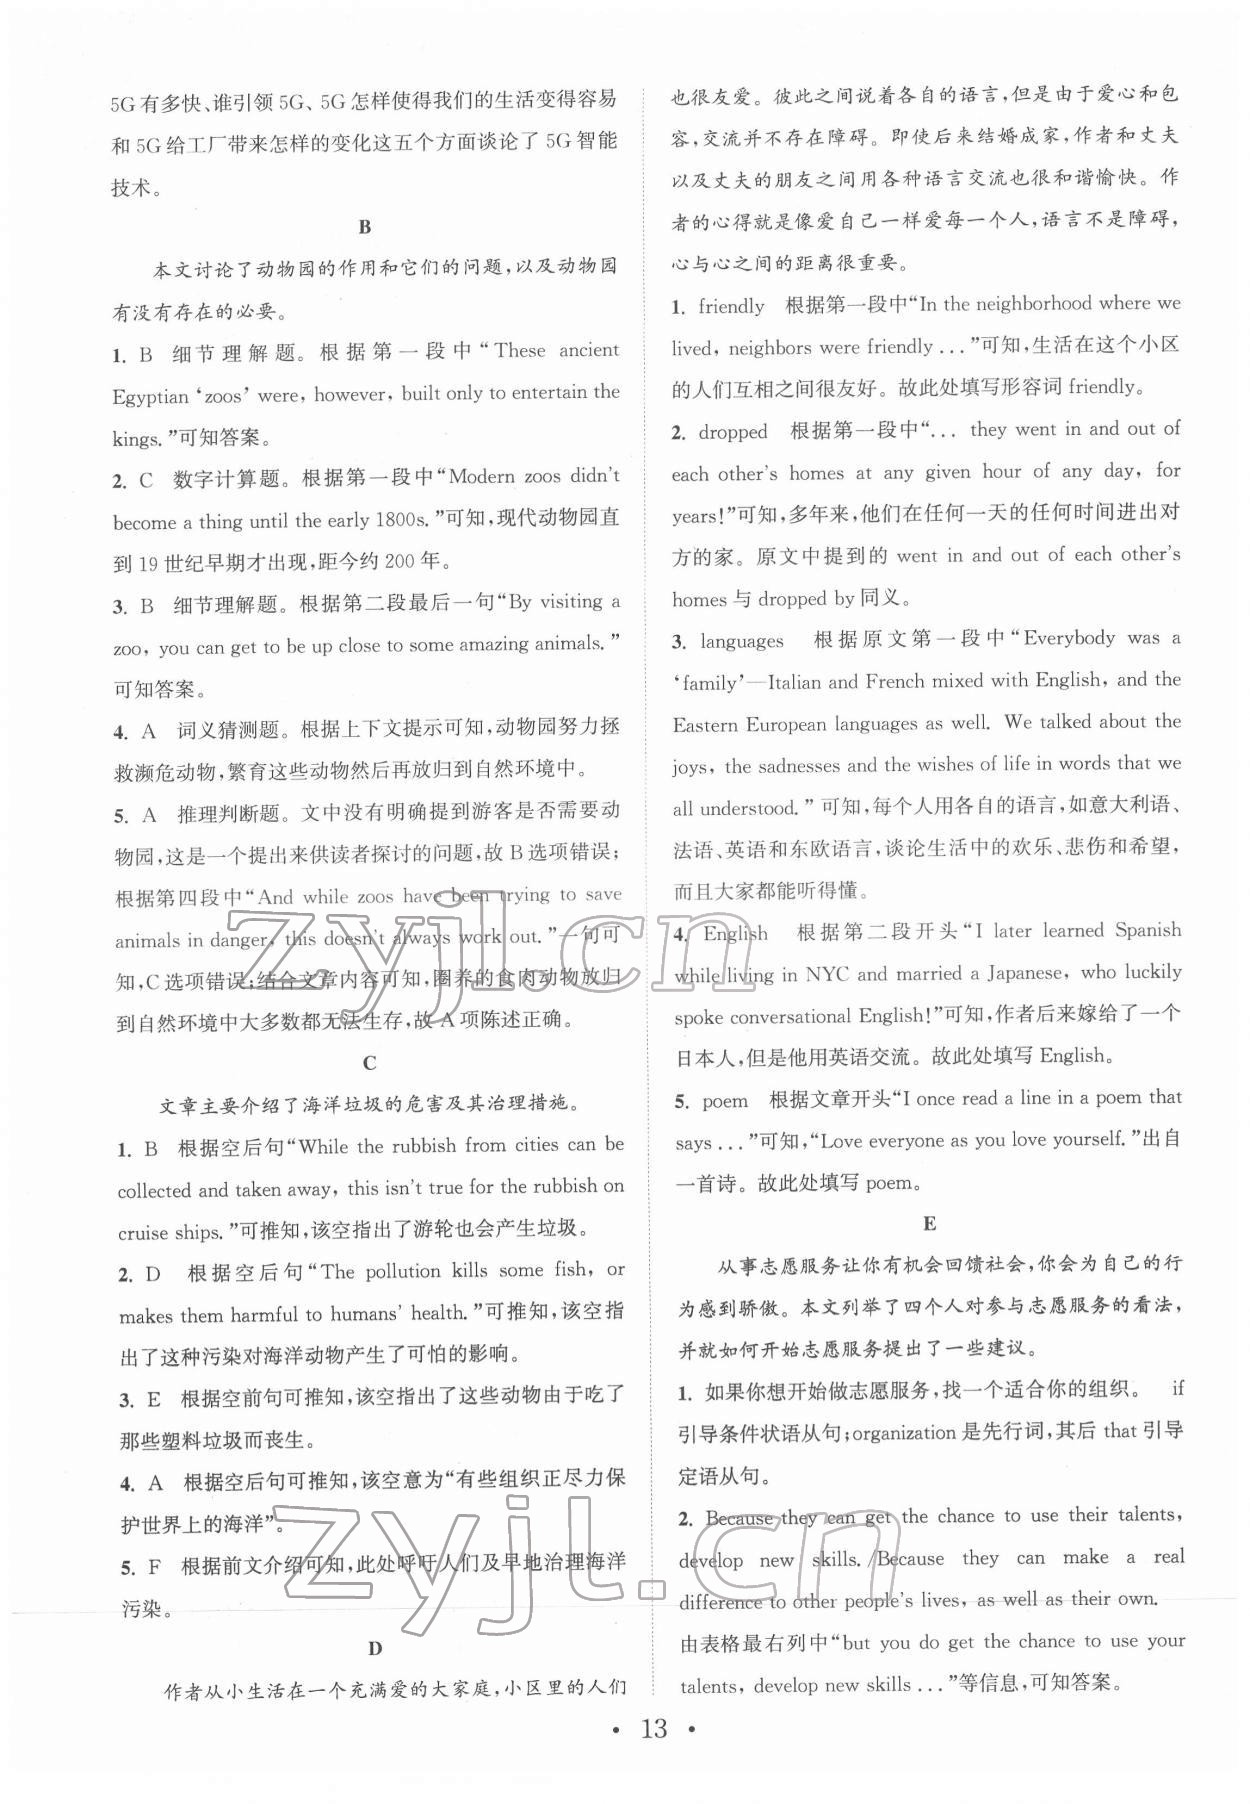 5G 有多快、谁引领 5G、5G 怎样使得我们的生活变得容易
和 5G 给工厂带来怎样的变化这五个方面谈论了 5G 智能
技术。
B
本文讨论了动物园的作用和它们的问题,以及动物园
有没有存在的必要。
1. B 细节理解题。根据第一段中“These ancient
Egyptian ‘zoos’ were, however, built only to entertain the
kings.”可知答案。
2. C 数字计算题。根据第一段中“Modern zoos didn't
become a thing until the early 1800s.”可知,现代动物园直
到 19 世纪早期才出现,距今约 200 年。
3. B 细节理解题。根据第二段最后一句“By visiting a
zoo, you can get to be up close to some amazing animals.”
可知答案。
4. A 词义猜测题。根据上下文提示可知,动物园努力拯
救濒危动物,繁育这些动物然后再放归到自然环境中。
5. A 推理判断题。文中没有明确提到游客是否需要动
物园,这是一个提出来供读者探讨的问题,故 B 选项错误;
根据第四段中“And while zoos have been trying to save
animals in danger, this doesn't always work out.”一句可
知,C 选项错误;结合文章内容可知,圈养的食肉动物放归
到自然环境中大多数都无法生存,故 A 项陈述正确。
C
文章主要介绍了海洋垃圾的危害及其治理措施。
1. B 根据空后句“While the rubbish from cities can be
collected and taken away, this isn't true for the rubbish on
cruise ships.”可推知,该空指出了游轮也会产生垃圾。
2. D 根据空后句“The pollution kills some fish, or
makes them harmful to humans' health.”可推知,该空指
出了这种污染对海洋动物产生了可怕的影响。
3. E 根据空前句可推知,该空指出了这些动物由于吃了
那些塑料垃圾而丧生。
4. A 根据空后句可推知,该空意为“有些组织正尽力保
护世界上的海洋”。
5. F 根据前文介绍可知,此处呼吁人们及早地治理海洋
污染。
D
作者从小生活在一个充满爱的大家庭,小区里的人们
也很友爱。彼此之间说着各自的语言,但是由于爱心和包
容,交流并不存在障碍。即使后来结婚成家,作者和丈夫
以及丈夫的朋友之间用各种语言交流也很和谐愉快。作
者的心得就是像爱自己一样爱每一个人,语言不是障碍,
心与心之间的距离很重要。
1. friendly 根据第一段中“In the neighborhood where we
lived, neighbors were friendly ...”可知,生活在这个小区
的人们互相之间很友好。故此处填写形容词 friendly。
2. dropped 根据第一段中“... they went in and out of
each other's homes at any given hour of any day, for
years!”可知,多年来,他们在任何一天的任何时间进出对
方的家。原文中提到的 went in and out of each other's
homes 与 dropped by 同义。
3. languages 根据原文第一段中“Everybody was a
‘family’—Italian and French mixed with English, and the
Eastern European languages as well. We talked about the
joys, the sadnesses and the wishes of life in words that we
all understood.”可知,每个人用各自的语言,如意大利语、
法语、英语和东欧语言,谈论生活中的欢乐、悲伤和希望,
而且大家都能听得懂。
4. English 根据第二段开头“I later learned Spanish
while living in NYC and married a Japanese, who luckily
spoke conversational English!”可知,作者后来嫁给了一个
日本人,但是他用英语交流。故此处填写 English。
5. poem 根据文章开头“I once read a line in a poem that
says ...”可知,“Love everyone as you love yourself.”出自
一首诗。故此处填写 poem。
E
从事志愿服务让你有机会回馈社会,你会为自己的行
为感到骄傲。本文列举了四个人对参与志愿服务的看法,
并就如何开始志愿服务提出了一些建议。
1. 如果你想开始做志愿服务,找一个适合你的组织。 if
引导条件状语从句;organization 是先行词,其后 that 引导
定语从句。
2. Because they can get the chance to use their talents,
develop new skills. /Because they can make a real
difference to other people's lives, as well as their own.
由表格最右列中“but you do get the chance to use your
talents, develop new skills ...”等信息,可知答案。
• 13 •
zyjl.cn
zyjl.cn